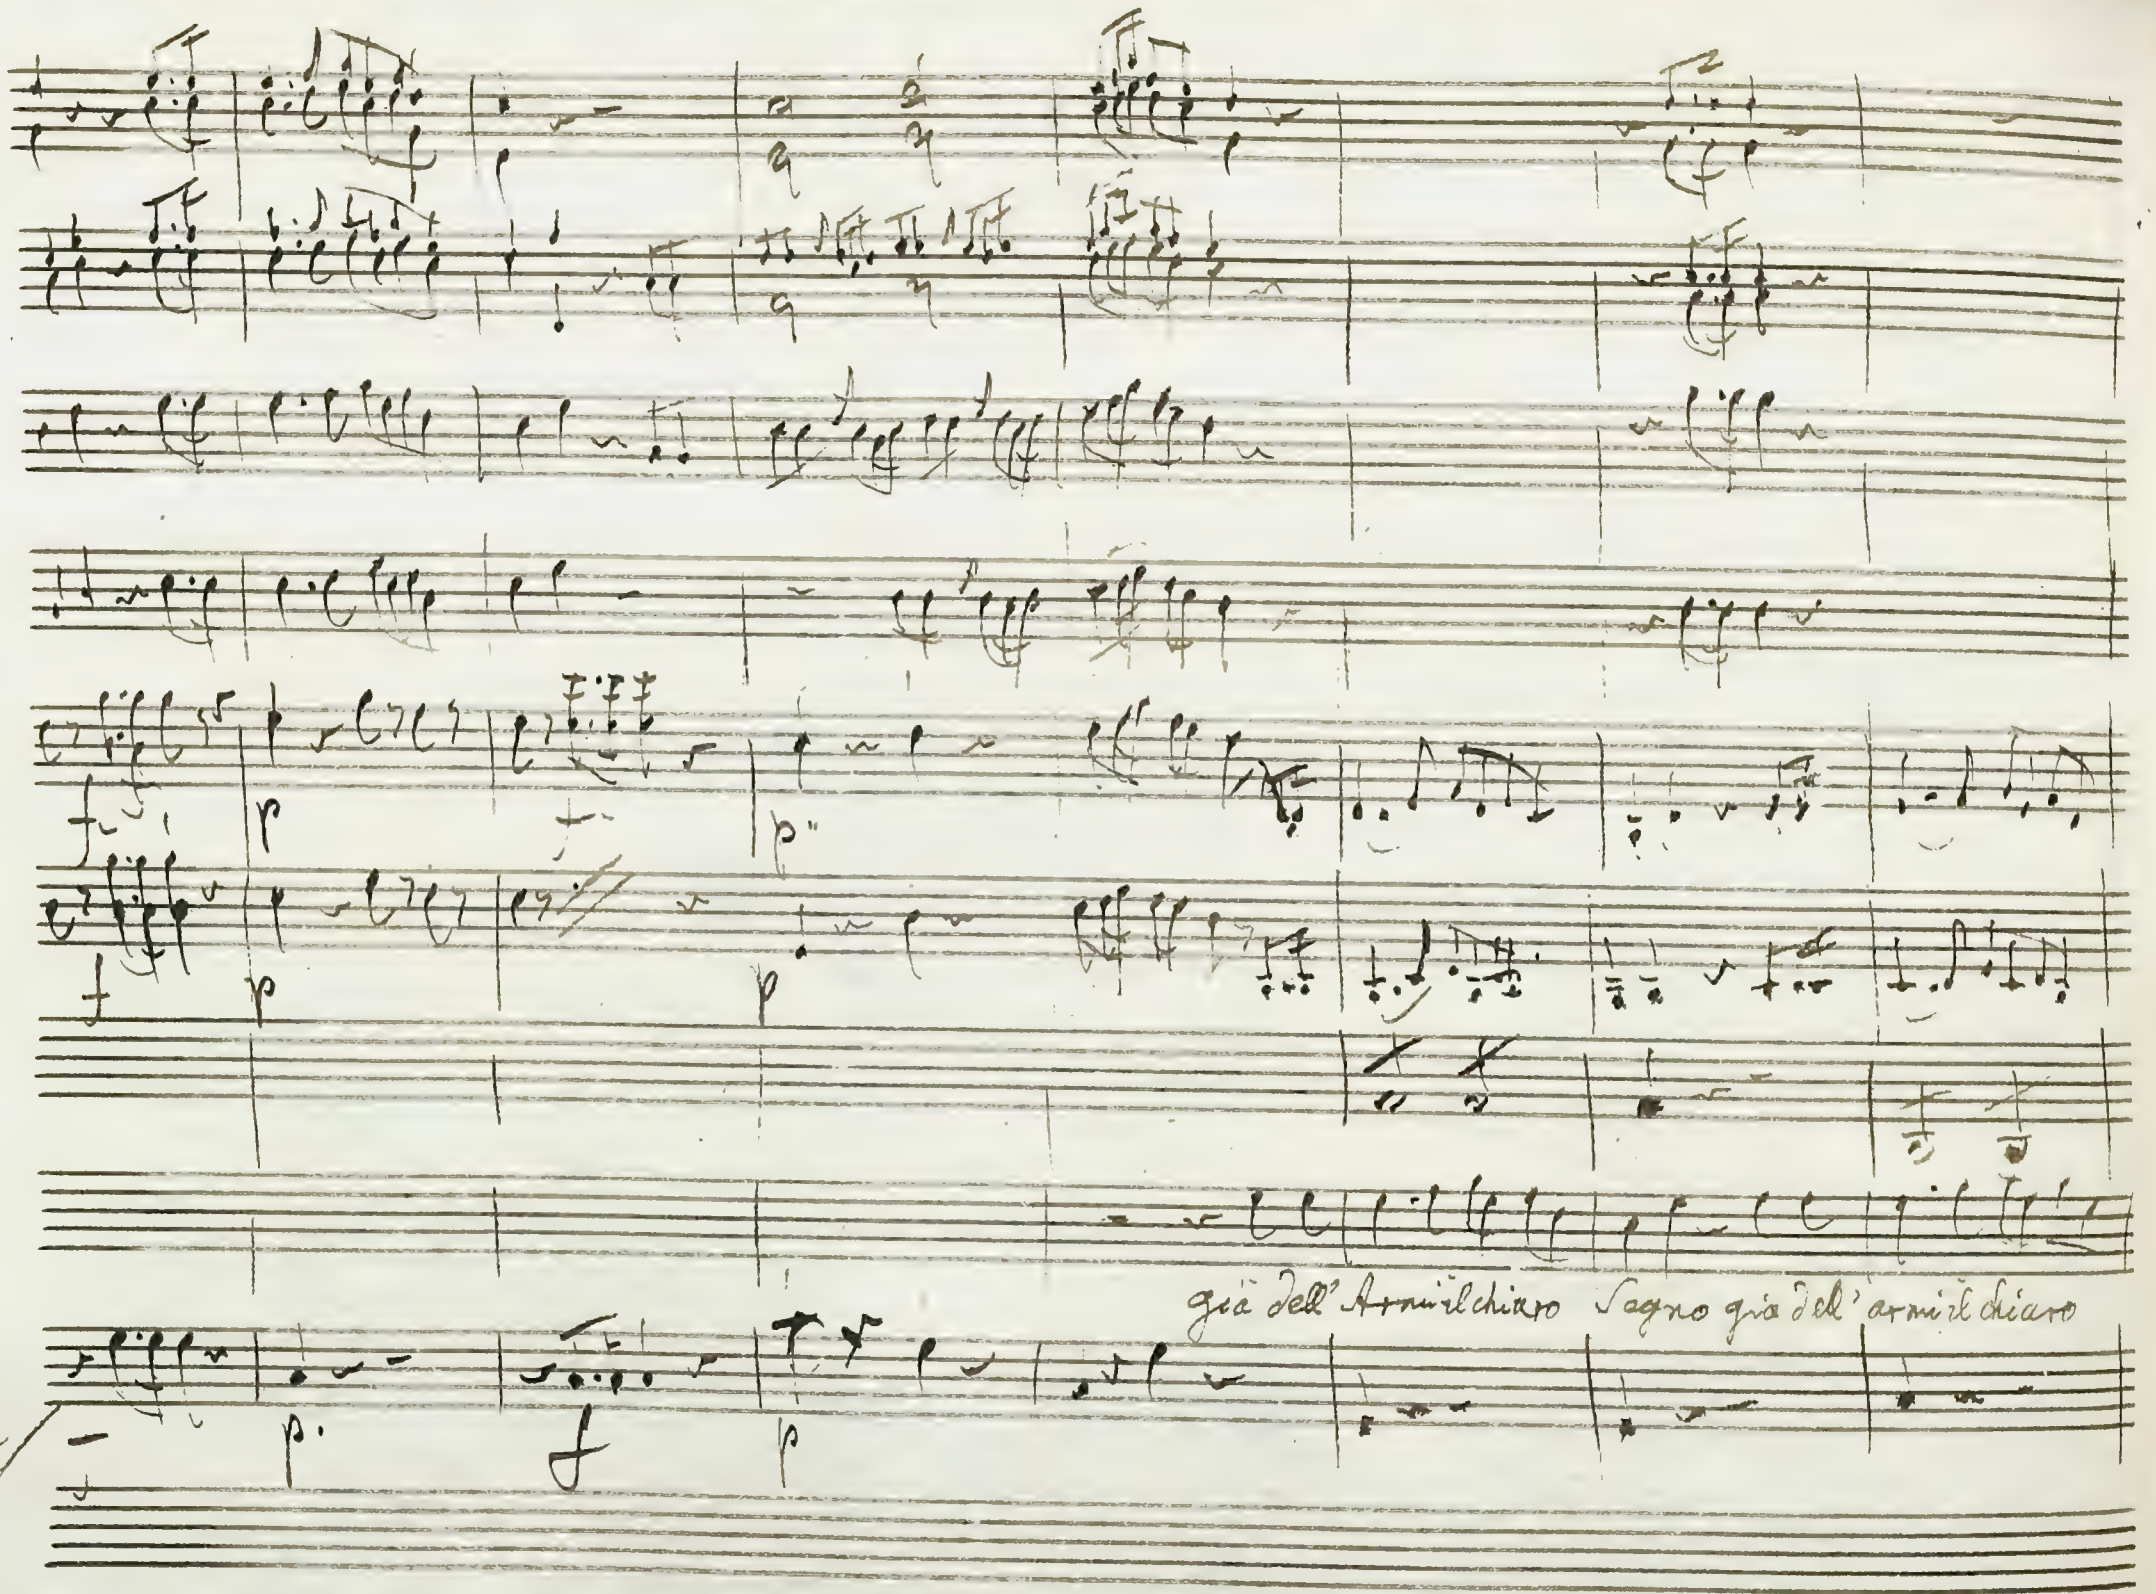 f p f p"
f p p
già dell' Armi il chiaro Segno già dell' armi il chiaro
p. f p